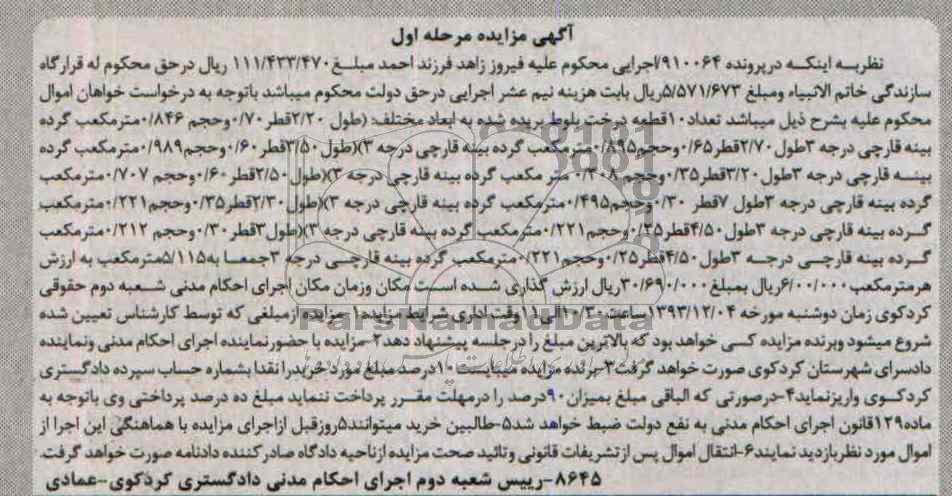 آگهی مزایده مرحله اول
نظربه اینکه درپرونده ۹۱۰۰۶۴/اجرایی محکوم علیه فیروز زاهد فرزند احمد مبلغ ۱۱۱/۴۳۳/۴۷۰ ریال درحق محکوم له قرارگاه
سازندگی خاتم الانبیاء ومبلغ ۵/۵۷۱/۶۷۳ریال بابت هزینه نیم عشر اجرایی درحق دولت محکوم میباشد باتوجه به درخواست خواهان اموال
محکوم علیه بشرح ذیل میباشد تعداد۱۰قطعه درخت بلوط بریده شده به ابعاد مختلف: (طول ۲/۲۰قطر۰/۷۰وحجم ۰/۸۴۶مترمکعب گرده
بینه قارچی درجه ۳طول۲/۷۰قطر۰/۶۵وحجم۰/۸۹۵مترمکعب گرده بینه قارچی درجه ۳)(طول۳/۵۰قطر۰/۶۰وحجم۰/۹۸۹مترمکعب گرده
بینه قارچی درجه ۳طول۳/۲۰قطر۰/۳۵وحجم۰/۳۰۸متر مکعب گرده بینه قارچی درجه ۳)(طول۲/۵۰قطر۰/۶۰وحجم ۰/۷۰۷مترمکعب
گرده بینه قارچی درجه ۳طول ۷قطر ۰/۳۰وحجم۰/۴۹۵مترمکعب گرده بینه قارچی درجه ۳)(طول۲/۳۰قطر۰/۳۵وحجم۰/۲۲۱مترمکعب
گرده بینه قارچی درجه ۳طول۴/۵۰قطر۰/۲۵وحجم۰/۲۲۱مترمکعب گرده بینه قارچی درجه ۳)(طول۳قطر۰/۳۰وحجم ۰/۲۱۲مترمکعب
گرده بینه قارچی درجه ۳طول۴/۵۰قطر۰/۲۵وحجم۰/۲۲۱مترمکعب گرده بینه قارچی درجه ۳جمعا به۵/۱۱۵مترمکعب به ارزش
هرمترمکعب۶/۰۰/۰۰۰ریال بمبلغ۳۰/۶۹۰/۰۰۰ریال ارزش گذاری شده است مکان وزمان مکان اجرای احکام مدنی شعبه دوم حقوقی
کردکوی زمان دوشنبه مورخه ۱۳۹۳/۱۲/۰۴ساعت۱۰/۳۰الی۱۱وقت اداری شرایط مزایده۱-مزایده ازمبلغی که توسط کارشناس تعیین شده
شروع میشود وبرنده مزایده کسی خواهد بود که بالاترین مبلغ را درجلسه پیشنهاد دهد۲-مزایده با حضورنماینده اجرای احکام مدنی ونماینده
دادسرای شهرستان کردکوی صورت خواهد گرفت۳-برنده مزایده میبایست۱۰درصد مبلغ مورد خریدرا نقدا بشماره حساب سپرده دادگستری
کردکوی واریزنماید۴-درصورتی که الباقی مبلغ بمیزان۹۰درصد را درمهلت مقرر پرداخت ننماید مبلغ ده درصد پرداختی وی باتوجه به
ماده۱۲۹قانون اجرای احکام مدنی به نفع دولت ضبط خواهد شد۵-طالبین خرید میتوانند۵روزقبل ازاجرای مزایده با هماهنگی این اجرا از
اموال مورد نظربازدید نمایند۶-انتقال اموال پس ازتشریفات قانونی وتائید صحت مزایده ازناحیه دادگاه صادرکننده دادنامه صورت خواهد گرفت.
۸۶۴۵-رییس شعبه دوم اجرای احکام مدنی دادگستری کردکوی-عمادی
ParsNamadData